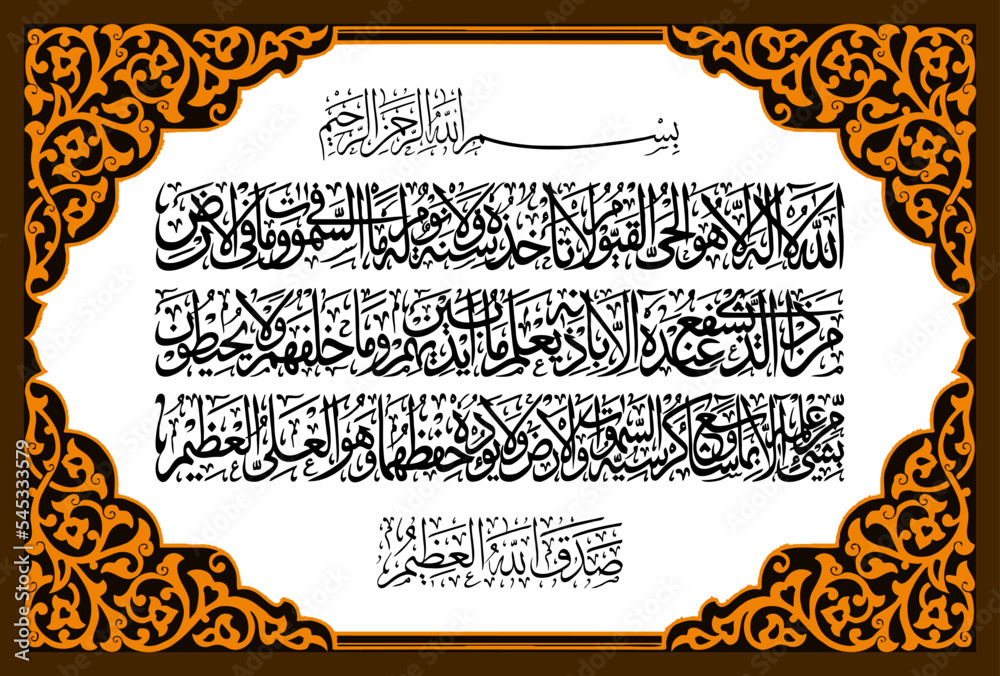 بسم الله الرحمن الرحيم
الله لا اله الا هو الحي القيوم لا تأخذه سنة ولا نوم له ما في السموات وما في الارض
من ذا الذي يشفع عنده الا باذنه يعلم ما بين ايديهم وما خلفهم ولا يحيطون
بشيء من علمه الا بما شاء وسع كرسيه السموات والارض ولا يؤده حفظهما وهو العلي العظيم
صدق الله العظيم
Adobe Stock | #545333579